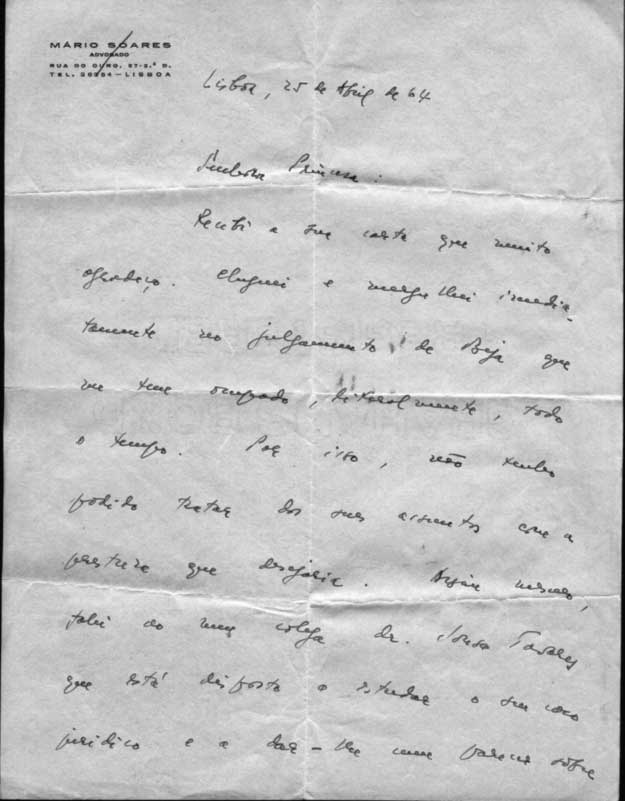 MÁRIO SOARES
ADVOGADO
RUA DO OURO, 87-2.º D.
TEL. 26254 — LISBOA
Lisboa, 25 de Abril de 64
Senhora Princesa:
Recebi a sua carta que muito
agradeço. Cheguei e mergulhei imedia-
tamente no julgamento de Beja que
me tem ocupado, literalmente, todo
o tempo. Por isso, não tenho
podido tratar dos seus assuntos com a
presteza que desejaria. Assim mesmo,
falei ao meu colega dr. Sousa Tavares
que está disposto a estudar o seu caso
jurídico e a dar-lhe um parecer sobre